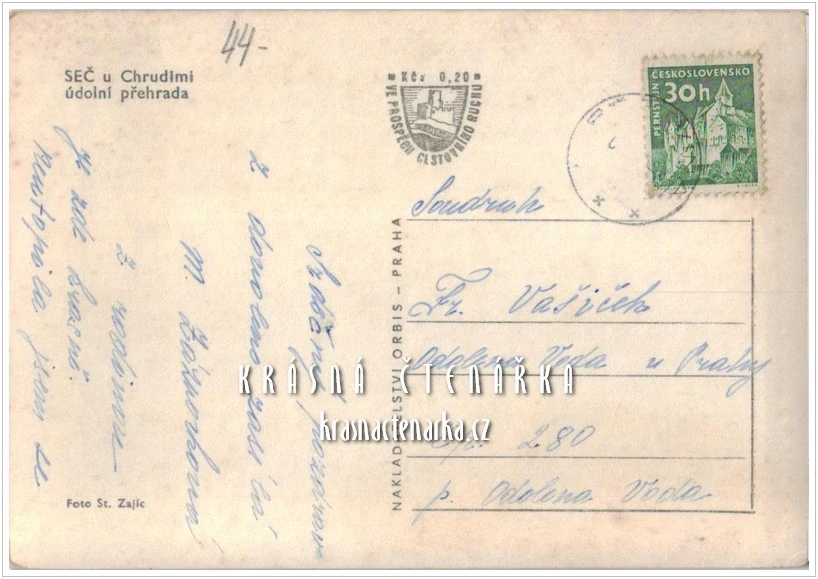 44-
SEČ u Chrudimi
údolní přehrada
Kčs 0,20
VE PROSPĚCH CESTOVNÍHO RUCHU
PERNŠTÁJN
ČESKOSLOVENSKO
30h
Srdečný pozdrav
z dovolené zasílá
M.
z rodinou
Je zde krásně.
Neutopila jsem se
NAKLADATELSTVÍ ORBIS – PRAHA
Soudruh
Fr. Vašíček
Odolena Voda u Prahy
čp. 280
p. Odolena Voda
KRÁSNÁ ČTENÁŘKA
krasnactenarka.cz
Foto St. Zajíc